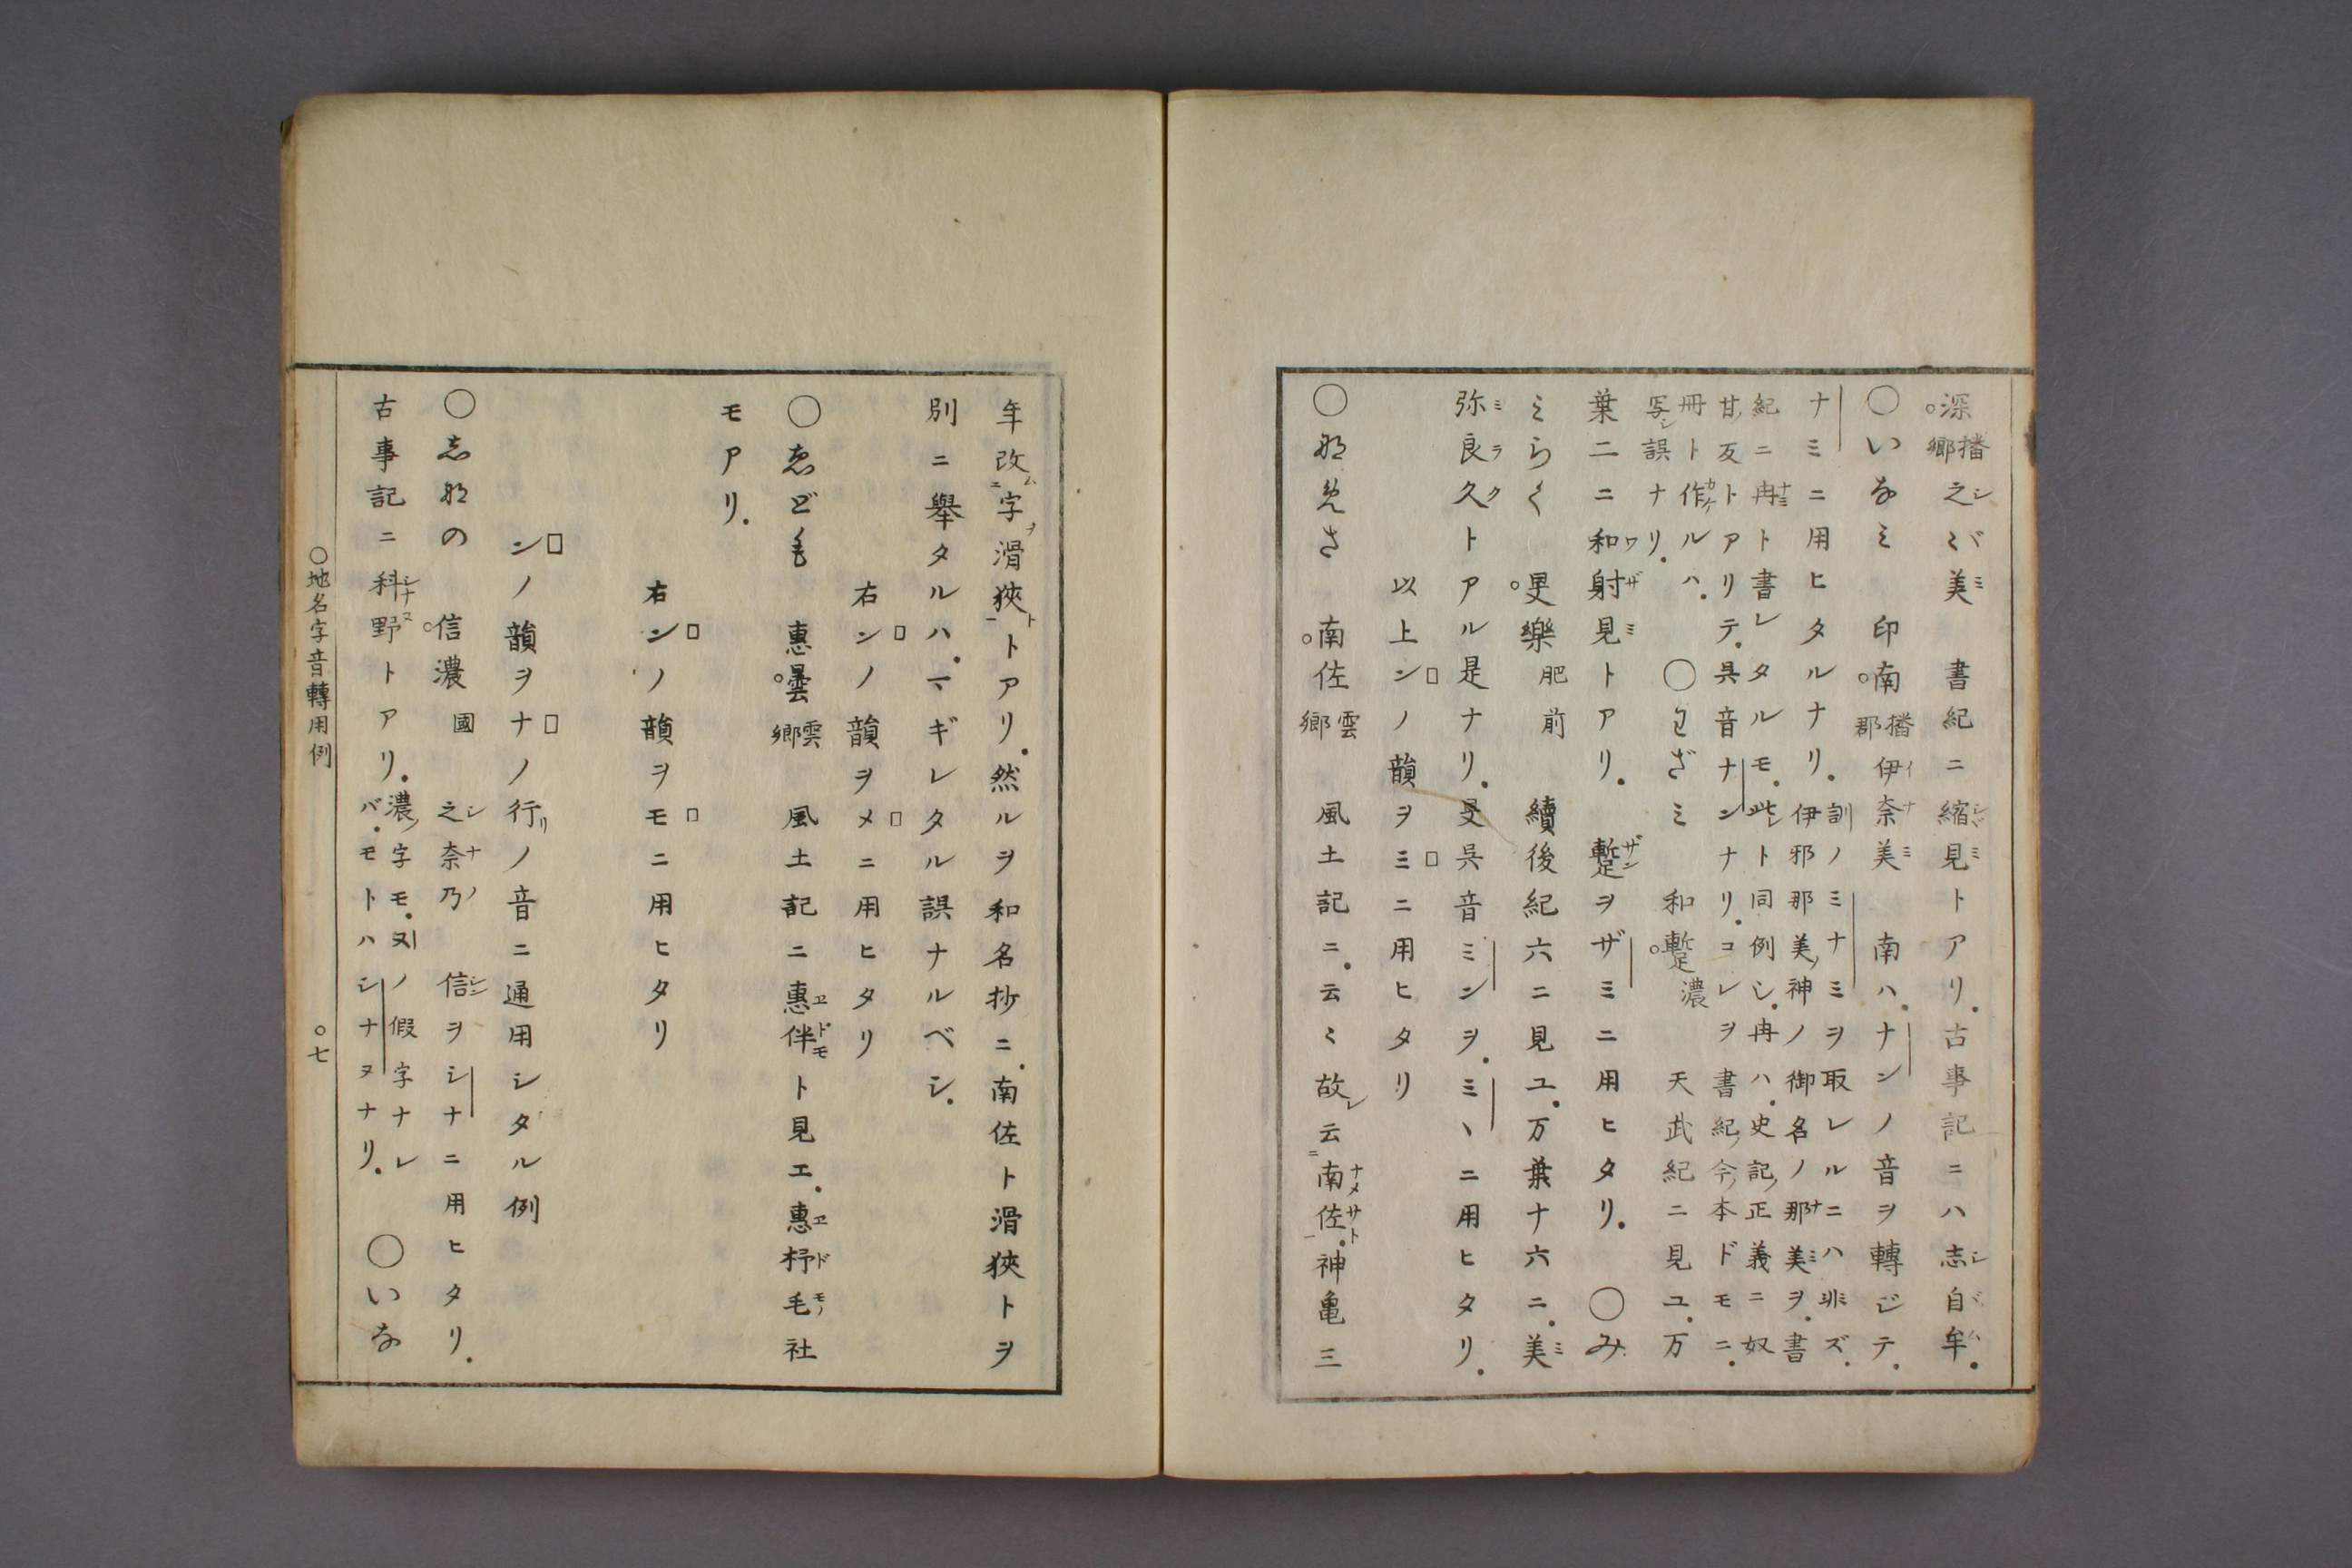 深播郷 之ミ美 書紀ニ縮見トアリ.古事記ニハ志自牟.
○いなミ 印南播郡 伊奈美 南ハ.ナンノ音ヲ轉ジテ.
ナミニ用ヒタルナリ.訓ノミナミヲ取レルニハ非ズ.
伊邪那美ノ神ノ御名ノ那美ヲ.書
紀ニ冉ト書レタルモ.此レト同例シ.冉ハ.史記ノ正義ニ奴
甘ノ反トアリテ.呉音ナンナリ.コレヲ書紀ノ今ノ本ドモニ.
冊ト作ルハ.
写シ誤ナリ.
○わざミ 和蹔濃 天武紀ニ見ユ.万
葉二ニ和射見トアリ.蹔ヲザミニ用ヒタリ. ○み
ミらく 旻樂肥前 續後紀六ニ見ユ.万葉十六ニ.美
弥良久トアル是ナリ.旻呉音ミンヲ.ミヽニ用ヒタリ.
以上ンノ韻ヲミニ用ヒタリ
○なめさ 南佐雲郷 風土記ニ.云ミ故云南佐.神亀三
年改字滑狹トアリ.然ルヲ和名抄ニ.南佐ト滑狹トヲ
別ニ擧タルハ.マギレタル誤ナルベシ.
右ンノ韻ヲメニ用ヒタリ
○ゑども 惠曇雲郷 風土記ニ惠伴ト見エ.惠杼毛社
モアリ.
右ンノ韻ヲモニ用ヒタリ
ンノ韻ヲナノ行リノ音ニ通用シタル例
○志なの 信濃國 之奈乃 信ヲシナニ用ヒタリ.
古事記ニ科野トアリ.濃ノ字モ.ヌノ假字ナレ
バ.モトハシナヌナリ. ○いな
○地名字音轉用例 ○七